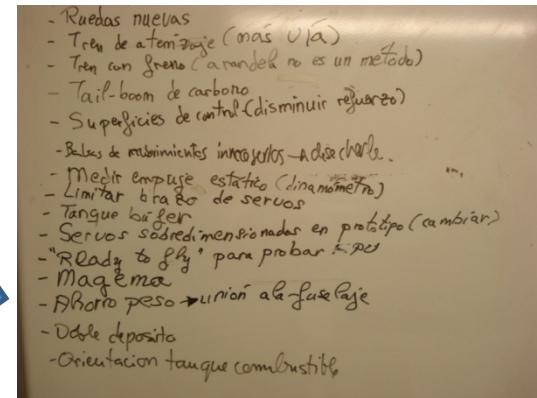 - Ruedas nuevas
- Tren de aterrizaje (más vía)
- Tren con freno (arandela no es un método)
- Tail-boom de carbono
- Superficies de control (disminuir refuerzo)
- de
- Medir empuje estático (dinamómetro)
- Limitar brazo de servos
- Tanque búfer
- Servos sobredimensionados en prototipo (cambiar)
- "Ready to fly" para probar
- Ahorro peso → unión ala-fuselaje
- Doble deposito
- Orientacion tanque combustible